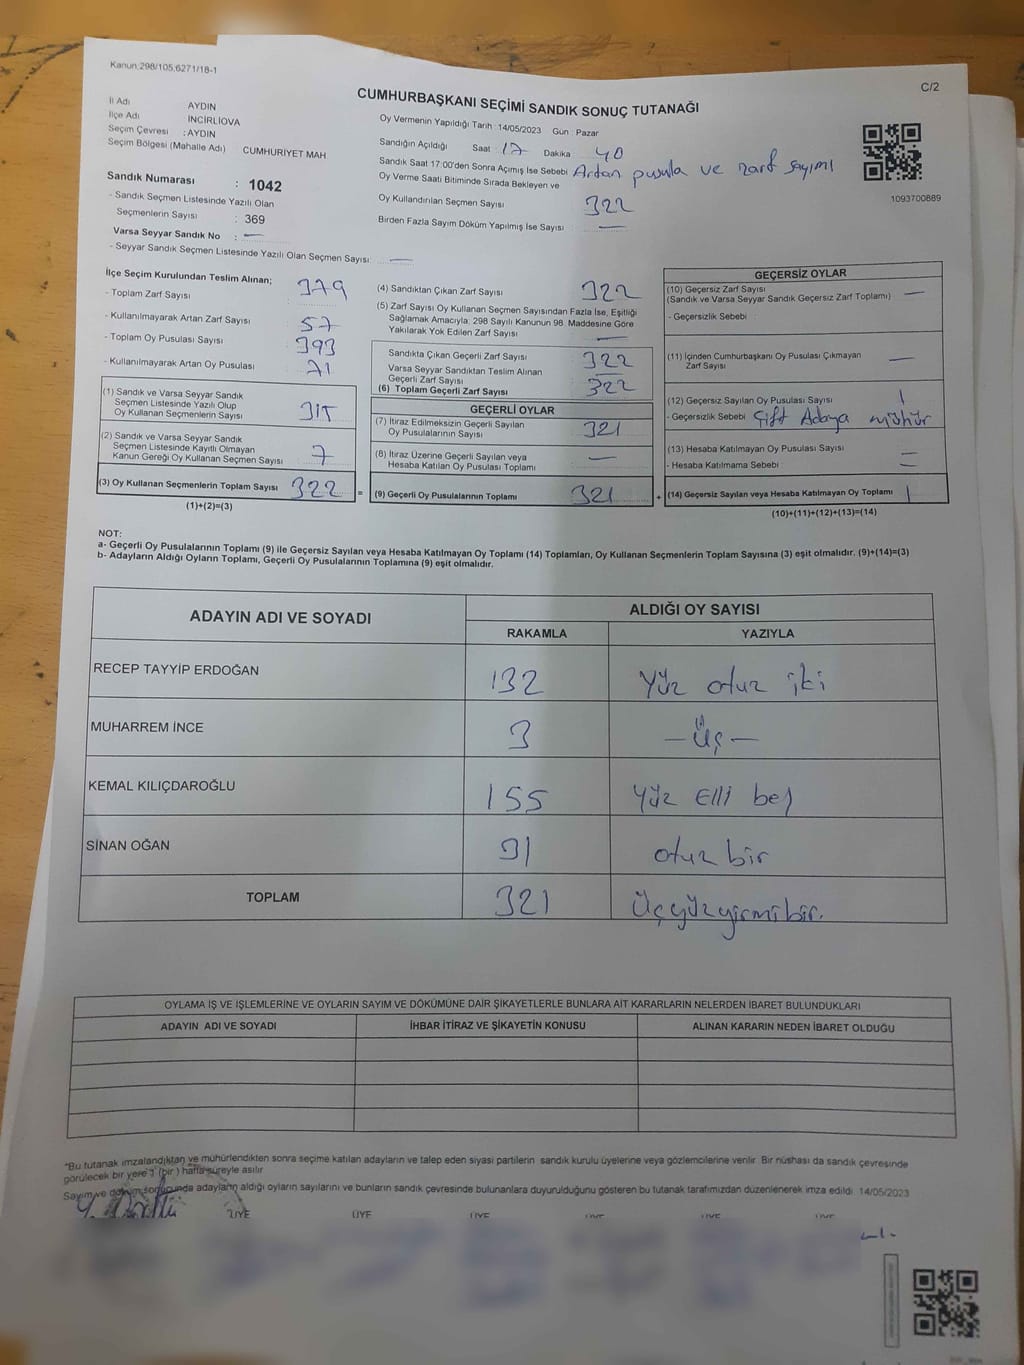 Kanun:298/105,6271/18-1
C/2
CUMHURBAŞKANI SEÇİMİ SANDIK SONUÇ TUTANAĞI
İl Adı AYDIN
İlçe Adı İNCİRLİOVA
Seçim Çevresi : AYDIN
Seçim Bölgesi (Mahalle Adı) CUMHURİYET MAH
Sandık Numarası : 1042
- Sandık Seçmen Listesinde Yazılı Olan
Seçmenlerin Sayısı : 369
Varsa Seyyar Sandık No : —
- Seyyar Sandık Seçmen Listesinde Yazılı Olan Seçmen Sayısı: —
Oy Vermenin Yapıldığı Tarih :14/05/2023 Gün : Pazar
Sandığın Açıldığı Saat 17 Dakika 40
Sandık Saat 17:00'den Sonra Açımış İse Sebebi Artan pusula ve zarf sayımı
Oy Verme Saati Bitiminde Sırada Bekleyen ve
Oy Kullandırılan Seçmen Sayısı 322
Birden Fazla Sayım Döküm Yapılmış İse Sayısı —
1093700889
İlçe Seçim Kurulundan Teslim Alınan;
- Toplam Zarf Sayısı 379
- Kullanılmayarak Artan Zarf Sayısı 57
- Toplam Oy Pusulası Sayısı 393
- Kullanılmayarak Artan Oy Pusulası 71
(1) Sandık ve Varsa Seyyar Sandık
Seçmen Listesinde Yazılı Olup
Oy Kullanan Seçmenlerin Sayısı 315
(2) Sandık ve Varsa Seyyar Sandık
Seçmen Listesinde Kayıtlı Olmayan
Kanun Gereği Oy Kullanan Seçmen Sayısı 7
(3) Oy Kullanan Seçmenlerin Toplam Sayısı 322 =
(1)+(2)=(3)
(4) Sandıktan Çıkan Zarf Sayısı 322
(5) Zarf Sayısı Oy Kullanan Seçmen Sayısından Fazla İse, Eşitliği
Sağlamak Amacıyla; 298 Sayılı Kanunun 98. Maddesine Göre
Yakılarak Yok Edilen Zarf Sayısı —
Sandıkta Çıkan Geçerli Zarf Sayısı 322
Varsa Seyyar Sandıktan Teslim Alınan
Geçerli Zarf Sayısı —
(6) Toplam Geçerli Zarf Sayısı 322
GEÇERLİ OYLAR
(7) İtiraz Edilmeksizin Geçerli Sayılan
Oy Pusulalarının Sayısı 321
(8) İtiraz Üzerine Geçerli Sayılan veya
Hesaba Katılan Oy Pusulası Toplamı —
(9) Geçerli Oy Pusulalarının Toplamı 321 +
GEÇERSİZ OYLAR
(10) Geçersiz Zarf Sayısı
(Sandık ve Varsa Seyyar Sandık Geçersiz Zarf Toplamı) —
- Geçersizlik Sebebi
(11) İçinden Cumhurbaşkanı Oy Pusulası Çıkmayan
Zarf Sayısı —
(12) Geçersiz Sayılan Oy Pusulası Sayısı 1
- Geçersizlik Sebebi Çift Adaya mühür
(13) Hesaba Katılmayan Oy Pusulası Sayısı —
- Hesaba Katılmama Sebebi —
(14) Geçersiz Sayılan veya Hesaba Katılmayan Oy Toplamı 1
(10)+(11)+(12)+(13)=(14)
NOT:
a- Geçerli Oy Pusulalarının Toplamı (9) ile Geçersiz Sayılan veya Hesaba Katılmayan Oy Toplamı (14) Toplamları, Oy Kullanan Seçmenlerin Toplam Sayısına (3) eşit olmalıdır. (9)+(14)=(3)
b- Adayların Aldığı Oyların Toplamı, Geçerli Oy Pusulalarının Toplamına (9) eşit olmalıdır.
ADAYIN ADI VE SOYADI ALDIĞI OY SAYISI
RAKAMLA YAZIYLA
RECEP TAYYİP ERDOĞAN 132 Yüz otuz iki
MUHARREM İNCE 3 —Üç—
KEMAL KILIÇDAROĞLU 155 Yüz Elli beş
SİNAN OĞAN 31 otuz bir
TOPLAM 321 Üçyüzyirmibir.
OYLAMA İŞ VE İŞLEMLERİNE VE OYLARIN SAYIM VE DÖKÜMÜNE DAİR ŞİKAYETLERLE BUNLARA AİT KARARLARIN NELERDEN İBARET BULUNDUKLARI
ADAYIN ADI VE SOYADI İHBAR İTİRAZ VE ŞİKAYETİN KONUSU ALINAN KARARIN NEDEN İBARET OLDUĞU
*Bu tutanak imzalandıktan ve mühürlendikten sonra seçime katılan adayların ve talep eden siyasi partilerin sandık kurulu üyelerine veya gözlemcilerine verilir. Bir nüshası da sandık çevresinde
görülecek bir yere 1 (bir) hafta süreyle asılır
Sayım ve döküm sonucunda adayların aldığı oyların sayılarını ve bunların sandık çevresinde bulunanlara duyurulduğunu gösteren bu tutanak tarafımızdan düzenlenerek imza edildi. 14/05/2023
ÜYE ÜYE ÜYE ÜYE ÜYE ÜYE